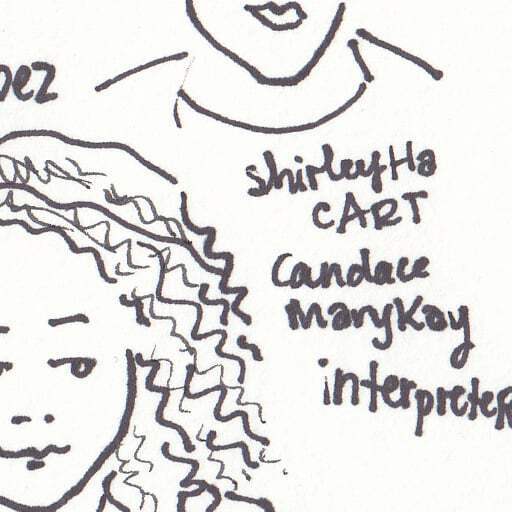 pez
Shirley Ha
CART
Candace
Mary Kay
interpreters